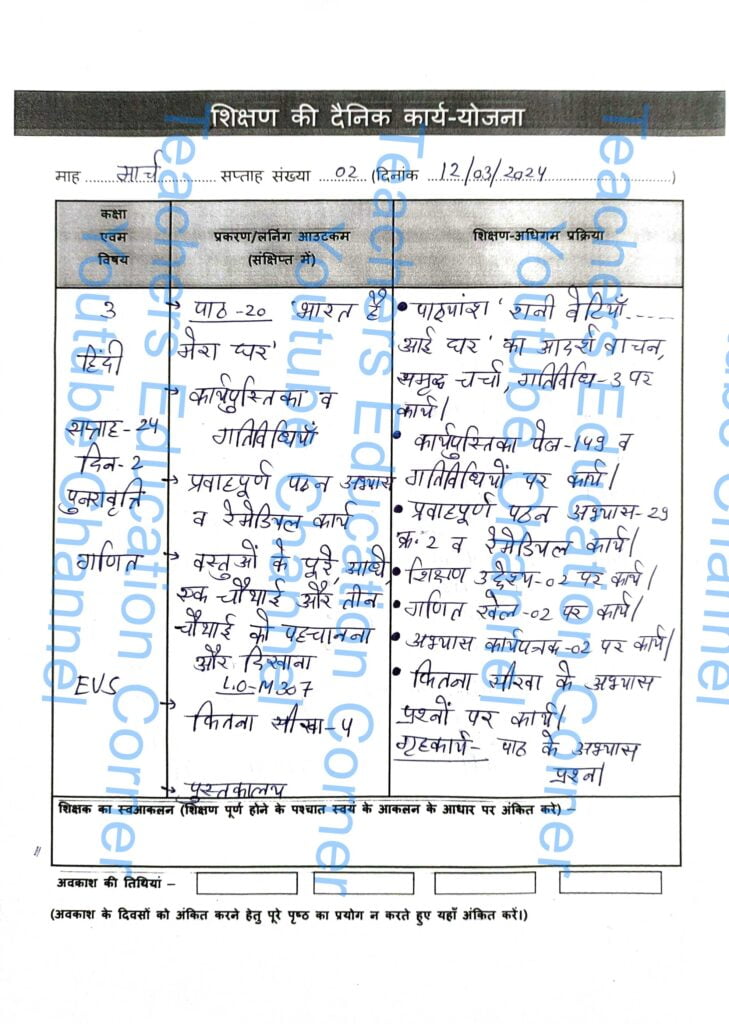 शिक्षण की दैनिक कार्य-योजना
माह मार्च सप्ताह संख्या 02 (दिनांक 12/03/2024)
कक्षा
एवम
विषय
प्रकरण/लर्निंग आउटकम
(संक्षिप्त में)
शिक्षण-अधिगम प्रक्रिया
3
हिंदी
सप्ताह-24
दिन-2
पुनरावृत्ति
गणित
EVS
→ पाठ-20 'भारत है
मेरा घर'
→ कार्यपुस्तिका व
गतिविधियाँ
→ प्रवाहपूर्ण पठन अभ्यास
व रेमेडियल कार्य
→ वस्तुओं के पूरे, आधे,
एक चौथाई और तीन
चौथाई को पहचानना
और दिखाना
LO-M307
→ कितना सीखा-4
→ पुस्तकालय
• पाठ्यांश 'रानी बेटियाँ.....
आई घर' का आदर्श वाचन,
समृद्ध चर्चा, गतिविधि-3 पर
कार्य।
• कार्यपुस्तिका पेज-149 व
गतिविधियों पर कार्य।
• प्रवाहपूर्ण पठन अभ्यास-29
क्र.2 व रेमेडियल कार्य।
• शिक्षण उद्देश्य-02 पर कार्य।
• गणित खेल-02 पर कार्य।
• अभ्यास कार्यपत्रक-02 पर कार्य।
• कितना सीखा के अभ्यास
प्रश्नों पर कार्य।
गृहकार्य- पाठ के अभ्यास
प्रश्न।
शिक्षक का स्वआकलन (शिक्षण पूर्ण होने के पश्चात स्वयं के आकलन के आधार पर अंकित करे) –
अवकाश की तिथियां –
(अवकाश के दिवसों को अंकित करने हेतु पूरे पृष्ठ का प्रयोग न करते हुए यहाँ अंकित करें।)
Teachers Education Corner
Youtube Channel
Teachers Education Corner
Youtube Channel
Teachers Education Corner
Youtube Channel